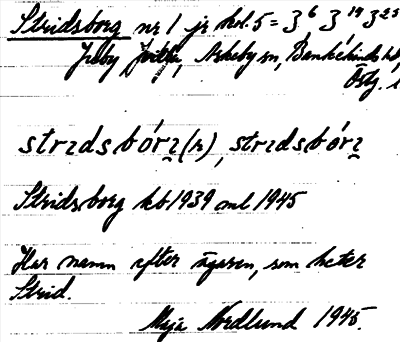 Stridsborg nr 1 je kol. 5 = 3⁶ 3¹⁹ 3²³
Askeby sn, Bankekinds hd,
Östg. l
strɪdsbórʓ(r), strɪdsbórʓ
Stridsborg kb 1939 oml 1945
Har namn efter ägaren, som heter
Strid.
Maja Nordlund 1945.